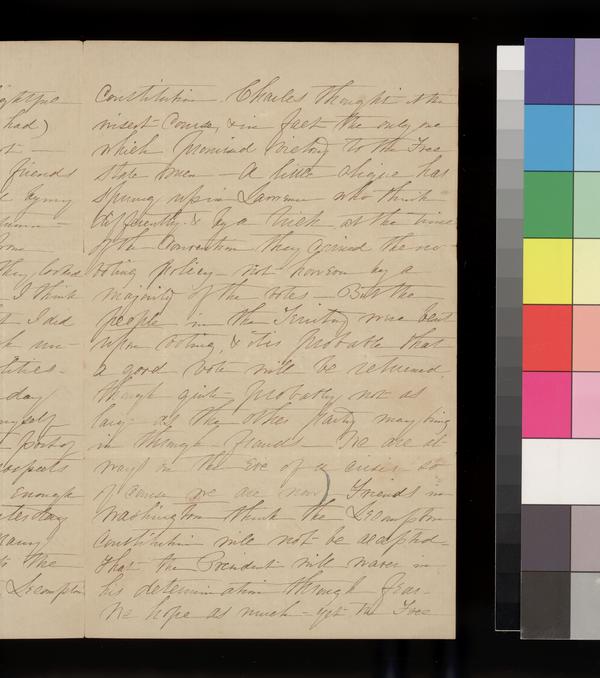 ightful
had)
friends
they looked
I think
t I did
un-
tities-
day
myself
port of
rospects
enough
yesterday
many
to the
Lecompton
Constitution. Charles thought it the
wisest course, & in fact the only one
which promised victory to the Free
State men - A little clique has
sprung up in Lawrence who think
differently. & by a trick at the time
of the Convention they gained the no-
voting policy - not however by a
majority of the votes - But the
people in the Territory were bent
upon voting, & it is probable that
a good vote will be returned,
though quite probably not as
large as the other party may bring
in through frauds - We are al-
ways on the eve of a crisis, so
of course we are now) Friends in
Washington think the Lecompton
Constitution will not be accepted-
that the President will waver in
his determination through fear-
We hope as much - yet the Free